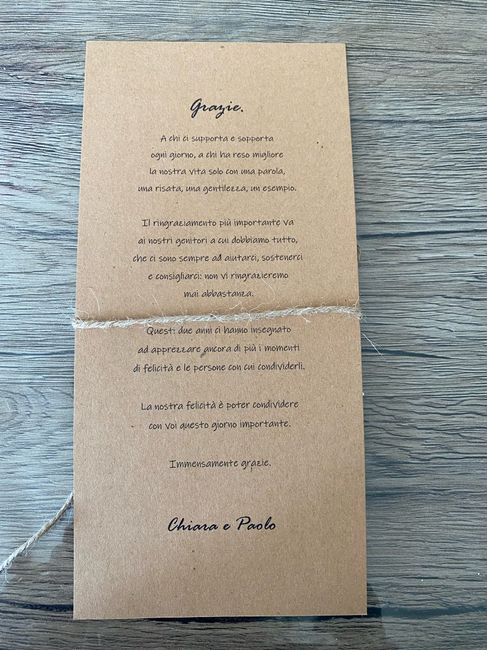 Grazie.
A chi ci supporta e sopporta
ogni giorno, a chi ha reso migliore
la nostra vita solo con una parola,
una risata, una gentilezza, un esempio.
Il ringraziamento più importante va
ai nostri genitori a cui dobbiamo tutto,
che ci sono sempre ad aiutarci, sostenerci
e consigliarci: non vi ringrazieremo
mai abbastanza.
Questi due anni ci hanno insegnato
ad apprezzare ancora di più i momenti
di felicità e le persone con cui condividerli.
La nostra felicità è poter condividere
con voi questo giorno importante.
Immensamente grazie.
Chiara e Paolo